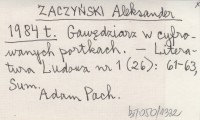 ZACZYŃSKI Aleksander
1984 t. Gawędziarz w cyfro-
wanych portkach. — Litera-
tura Ludowa nr 1 (26): 61-63,
Sum.
Adam Pach.